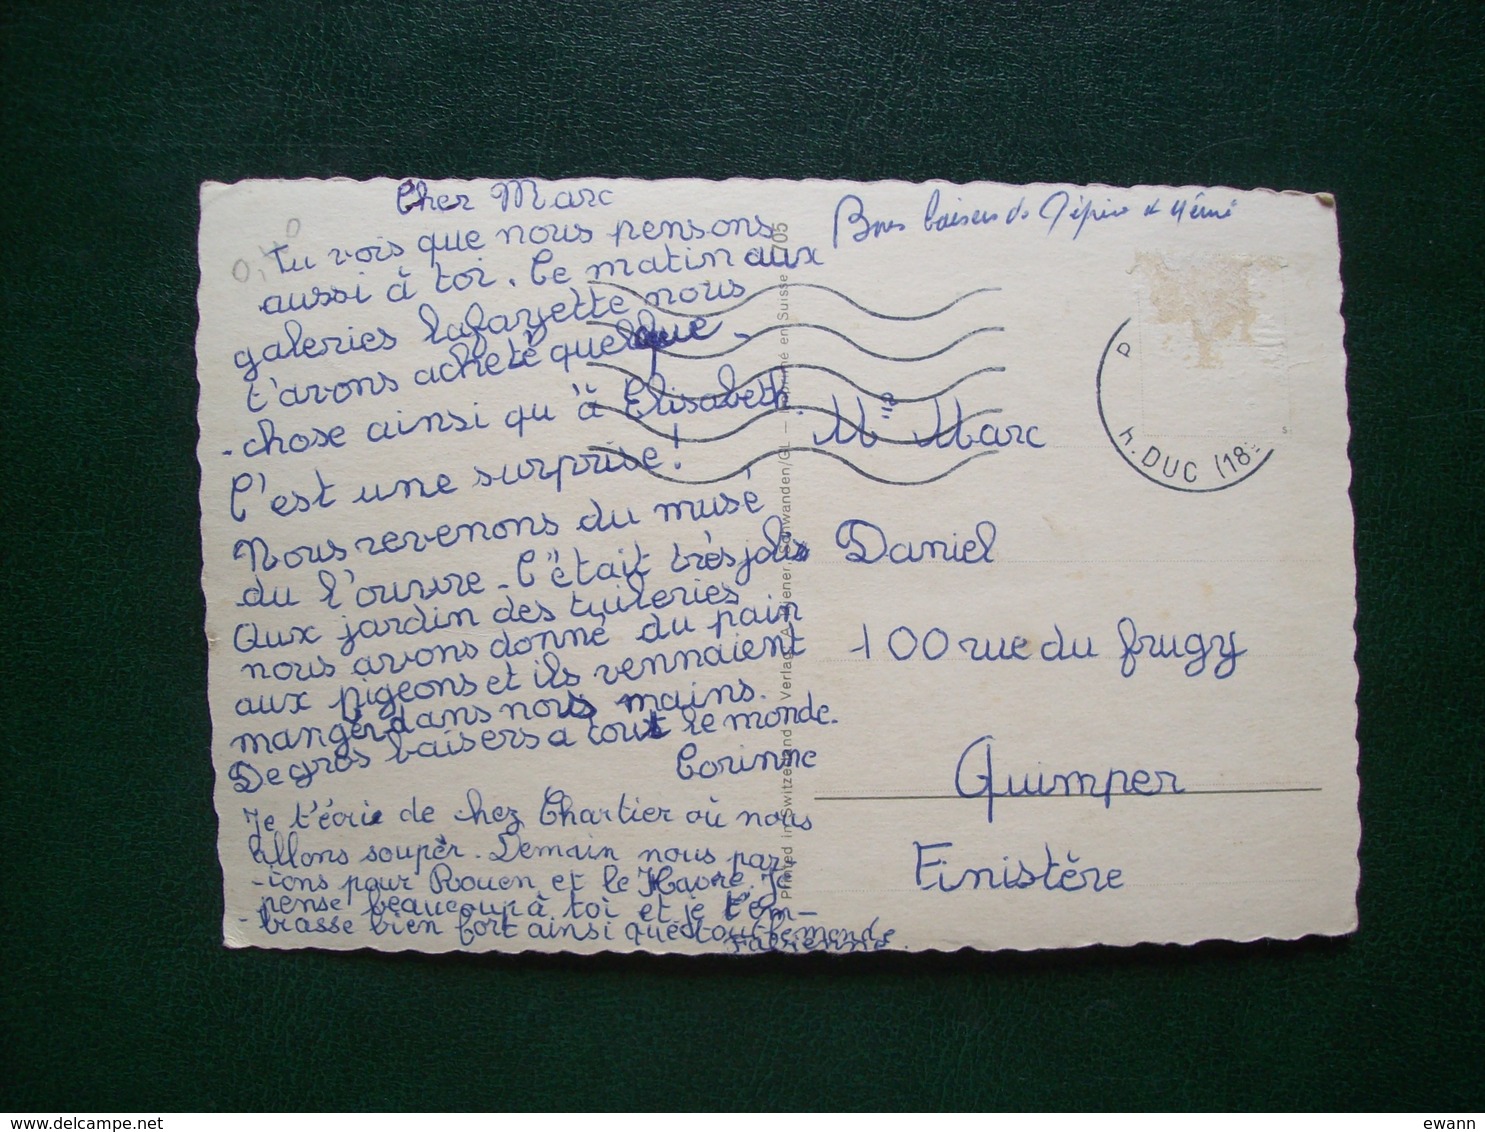 Cher Marc
Tu vois que nous pensons
aussi à toi. Ce matin aux
galeries lafayette nous
t'avons acheté quelque
-chose ainsi qu'à Elisabeth.
C'est une surprise!
Nous revenons du musé
du l'ouvre - C'était très joli
Aux jardin des tuileries
nous avons donné du pain
aux pigeons et ils vennaient
manger dans nous mains.
De gros baisers a tout le monde.
Corinne
Je t'écrie de chez Chartier où nous
allons souper. Demain nous par-
-tons pour Rouen et le Havre. Je
pense beaucoup à toi et je t'em-
-brasse bien fort ainsi que tout le monde
Fabienne.
Bons baisers de Pépère & Mémé
Printed in Switzerland Verlag Schwanden/GL - Imprimé en Suisse
P
h. DUC (18
s
Mr Marc
Daniel
100 rue du frugy
Quimper
Finistère
0,40
ewann
delcampe.net